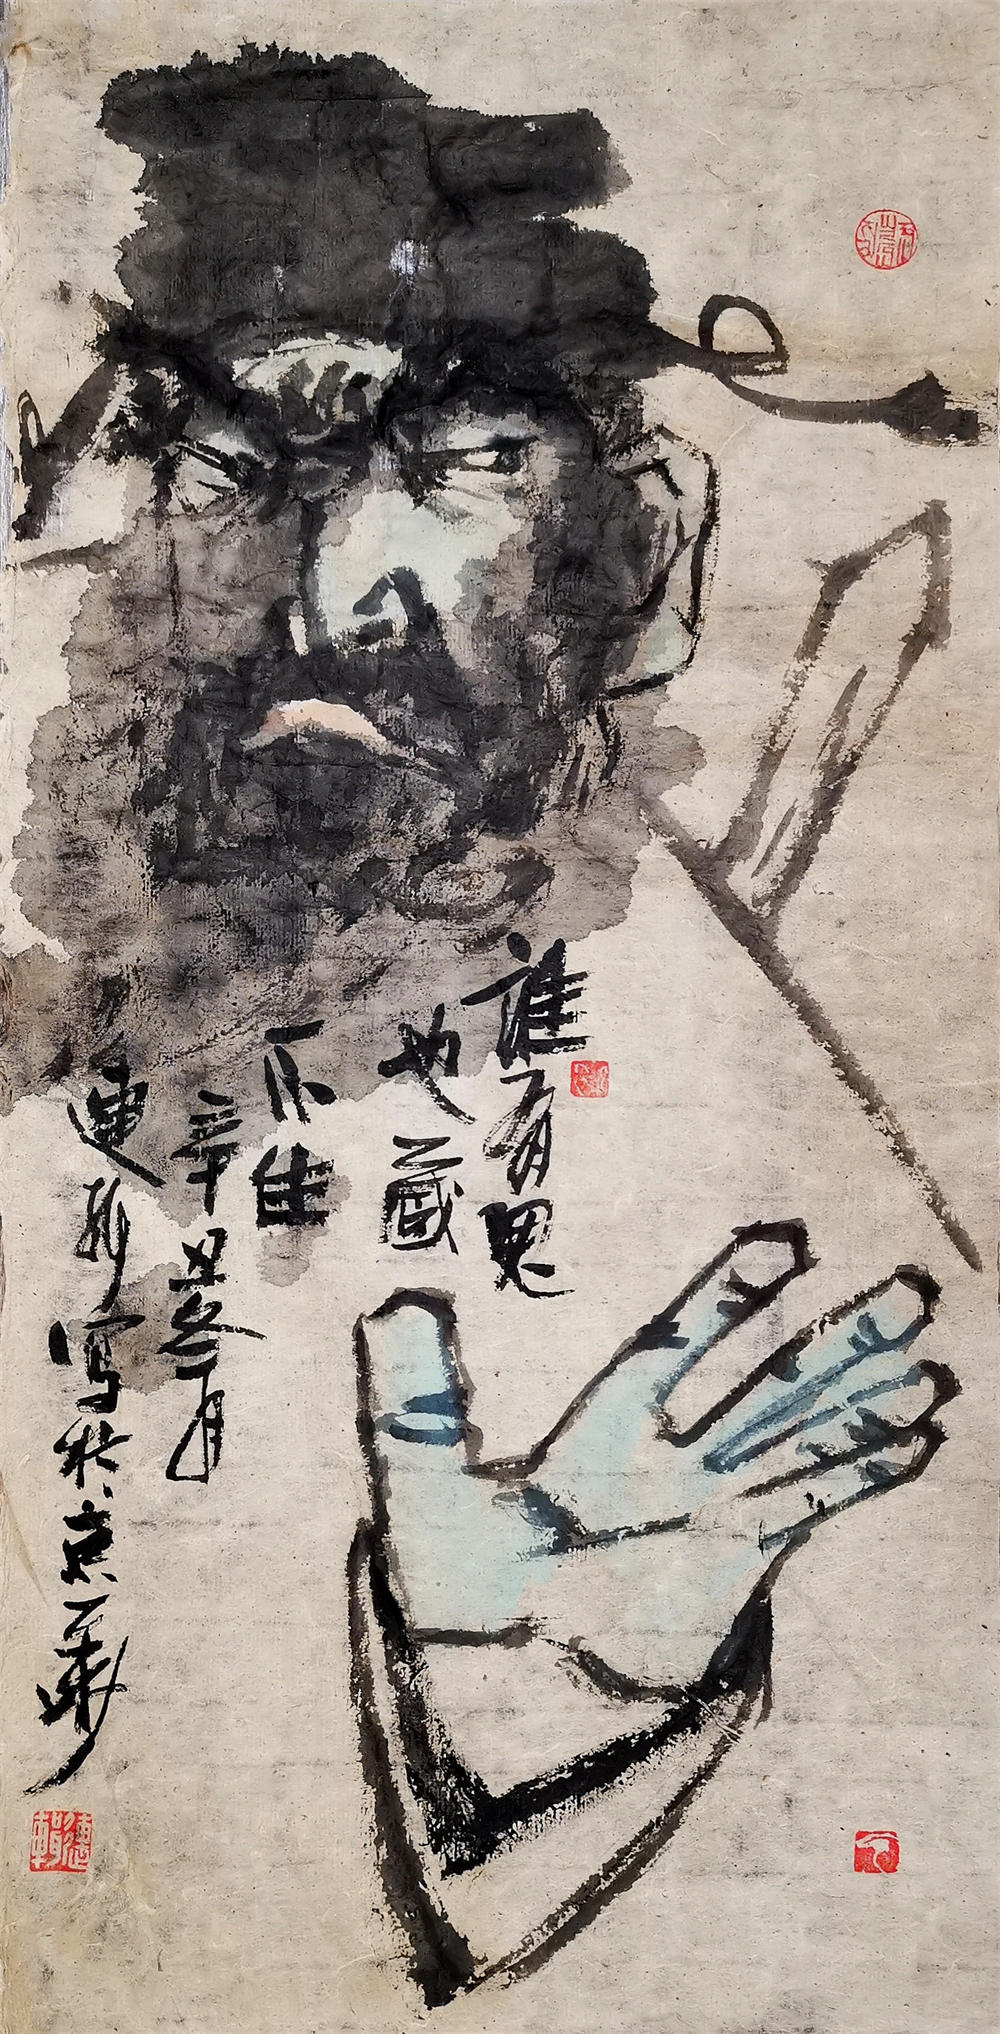 誰有鬼
也藏
不住
辛丑冬月
連軒寫於京華